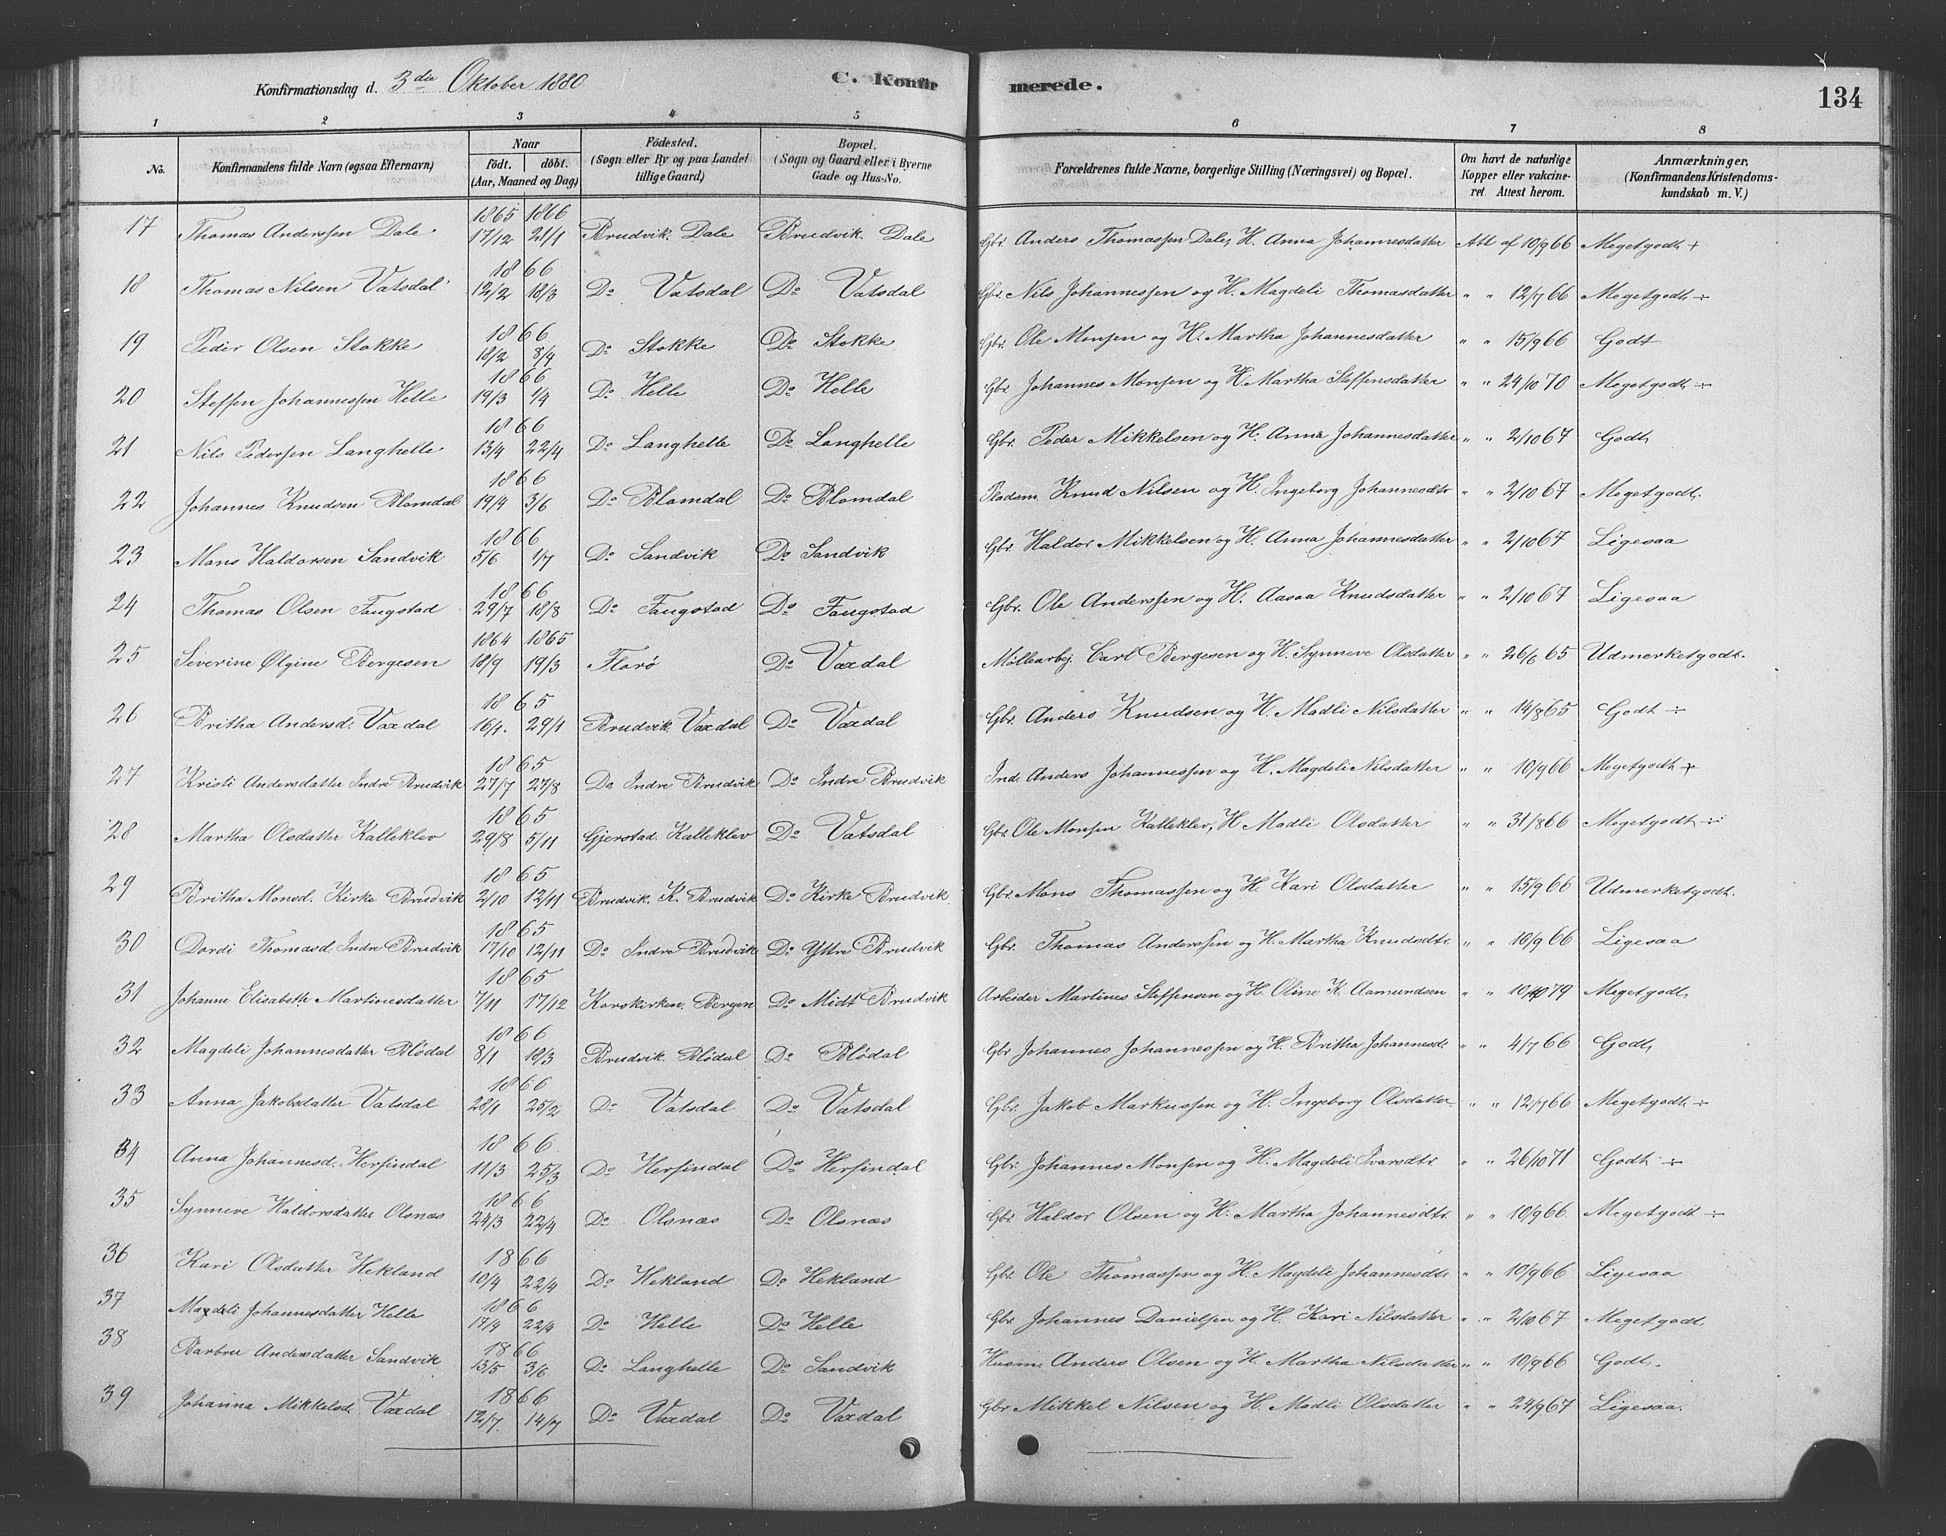 Konfirmationsdag d. 3die Oktober 1880 C. Konfirmerede. 134
1 2 3 4 5 6 7 8
No. Konfirmandens fulde Navn (ogsaa Efternavn) Naar födt. döbt. (Aar, Maaned og Dag) Födested. (Sogn eller By og paa Landet tillige Gaard) Bopæl. (Sogn og Gaard eller i Byerne Gade og Hus-No. Forældrenes fulde Navne, borgerlige Stilling (Næringsvei) og Bopæl. Om havt de naturlige Kopper eller vakcineret. Attest herom. Anmærkninger, (Konfirmandens Kristendomskundskab m. V.)
17 Thomas Anderssen Dale 1865 17/12 1866 21/1 Brudvik. Dale Brudvik. Dale Gbr. Anders Thomassen Dale, H. Anna Johannesdatter Att af 10/9 66 Megetgodt +
18 Thomas Nilsen Vatsdal 1866 12/2 18/3 Do Vatsdal Do Vatsdal Gbr. Nils Johannessen og H. Magdeli Thomasdatter " " 12/7 66 Megetgodt ÷
19 Peder Olsen Stokke 1866 18/2 8/4 Do Stokke Do Stokke Gbr. Ole Monsen og H. Martha Johannesdatter " " 15/9 66 Godt
20 Steffen Johannessen Helle 1866 19/3 1/4 Do Helle Do Helle Gbr. Johannes Monsen og H. Martha Steffensdatter " " 24/10 70 Megetgodt ÷
21 Nils Pedersen Langhelle 1866 13/4 22/4 Do Langhelle Do Langhelle Gbr. Peder Mikkelsen og H. Anna Johannesdatter " " 2/10 67 Godt
22 Johannes Knudsen Blomdal 1866 19/4 3/6 Do Blomdal Do Blomdal Pladsm. Knud Nilsen og H. Ingeborg Johannesdtr " " 2/10 67 Megetgodt.
23 Mons Haldorsen Sandvik 1866 5/6 1/7 Do Sandvik Do Sandvik Gbr. Haldor Mikkelsen og H. Anna Johannesdatter " " 2/10 67 Ligesaa
24 Thomas Olsen Faugstad 1866 29/7 18/8 Do Faugstad Do Faugstad Gbr. Ole Anderssen og H. Aasaa Knudsdatter " " 2/10 67 Ligesaa
25 Severine Olgine Bergesen 1864 18/9 1865 19/3 Florö Do Vaxdal Möllearbej. Carl Bergesen og H. Synneve Olsdatter " " 26/6 65 Udmerketgodt.
26 Britha Andersd. Vaxdal 1865 16/4. 29/4 Brudvik. Vaxdal Do Vaxdal Gbr. Anders Knudsen og H. Madli Nilsdatter " " 14/8 65 Godt ÷
27 Kristi Andersdatter Indre Brudvik 1865 27/7 27/8 Do Indre Brudvik Do Indre Brudvik Ind. Anders Johannessen og H. Magdeli Nilsdatter " " 10/9 66 Megetgodt +
28 Martha Olsdatter Kalleklev 1865 29/8 5/11 Gjerstad. Kalleklev Do Vatsdal Gbr. Ole Monsen Kalleklev, H. Madli Olsdatter " " 31/8 66 Megetgodt ÷
29 Britha Monsd. Kirke Brudvik 1865 2/10 12/11 Brudvik. K. Brudvik Do Kirke Brudvik. Gbr. Mons Thomassen og H. Kari Olsdatter " " 15/9 66 Udmerketgodt.
30 Dordi Thomasd. Indre Brudvik 1865 17/10 12/11 Do Indre Brudvik Do Yttre Brudvik Gbr. Thomas Anderssen og H. Martha Knudsdtr. " " 10/9 66 Ligesaa
31 Johanne Elisabeth Martinesdatter 1865 7/11 17/12 Korskirken. Bergen Do Midt Brudvik Arbeider Martines Steffensen og H. Oline K. Aamundsen " " 10/10 79 Megetgodt
32 Magdeli Johannesdatter Blödal 1866 8/1 18/3 Brudvik. Blödal Do Blödal Gbr Johannes Johannessen og H. Britha Johannesdt. " " 4/7 66 Godt
33 Anna Jakobsdatter Vatsdal 1866 28/1 25/2 Do Vatsdal Do Vatsdal Gbr. Jakob Markussen og H. Ingeborg Olsdatter " " 12/7 66 Megetgodt ÷
34 Anna Johannesd. Herfindal 1866 11/3 25/3 Do Herfindal Do Herfindal Gbr. Johannes Monsen og H. Magdeli Ivarsdtr " " 26/10 71 Godt ÷
35 Synneve Haldorsdatter Olsnæs 1866 24/3 22/4 Do Olsnæs Do Olsnæs Gbr. Haldor Olsen og H. Martha Johannesdtr. " " 10/9 66. Megetgodt ÷
36 Kari Olsdatter Hekland 1866 10/4 22/4 Do Hekland Do Hekland Gbr. Ole Thomassen og H. Magdeli Johannesdtr " " 10/9 66 Ligesaa
37 Magdeli Johannesdatter Helle 1866 17/4 22/4 Do Helle Do Helle Gbr. Johannes Danielsen og H. Kari Nilsdatter " " 2/10 67 Megetgodt
38 Barbru Andersdatter Sandvik 1866 13/5 3/6 Do Langhelle Do Sandvik Husm. Anders Olsen og H. Martha Nilsdatter " " 10/9 66 Godt.
39 Johanna Mikkelsd. Vaxdal 1866 12/7. 14/7 Do Vaxdal Do Vaxdal Gbr Mikkel Nilsen og H. Madli Olsdatter " " 24/9 67 Ligesaa.